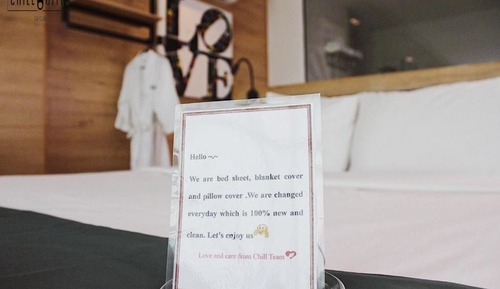 CHILL
LOVE
Hello ~.~
We are bed sheet, blanket cover
and pillow cover .We are changed
everyday which is 100% new and
clean. Let's enjoy us
Love and care from Chill Team